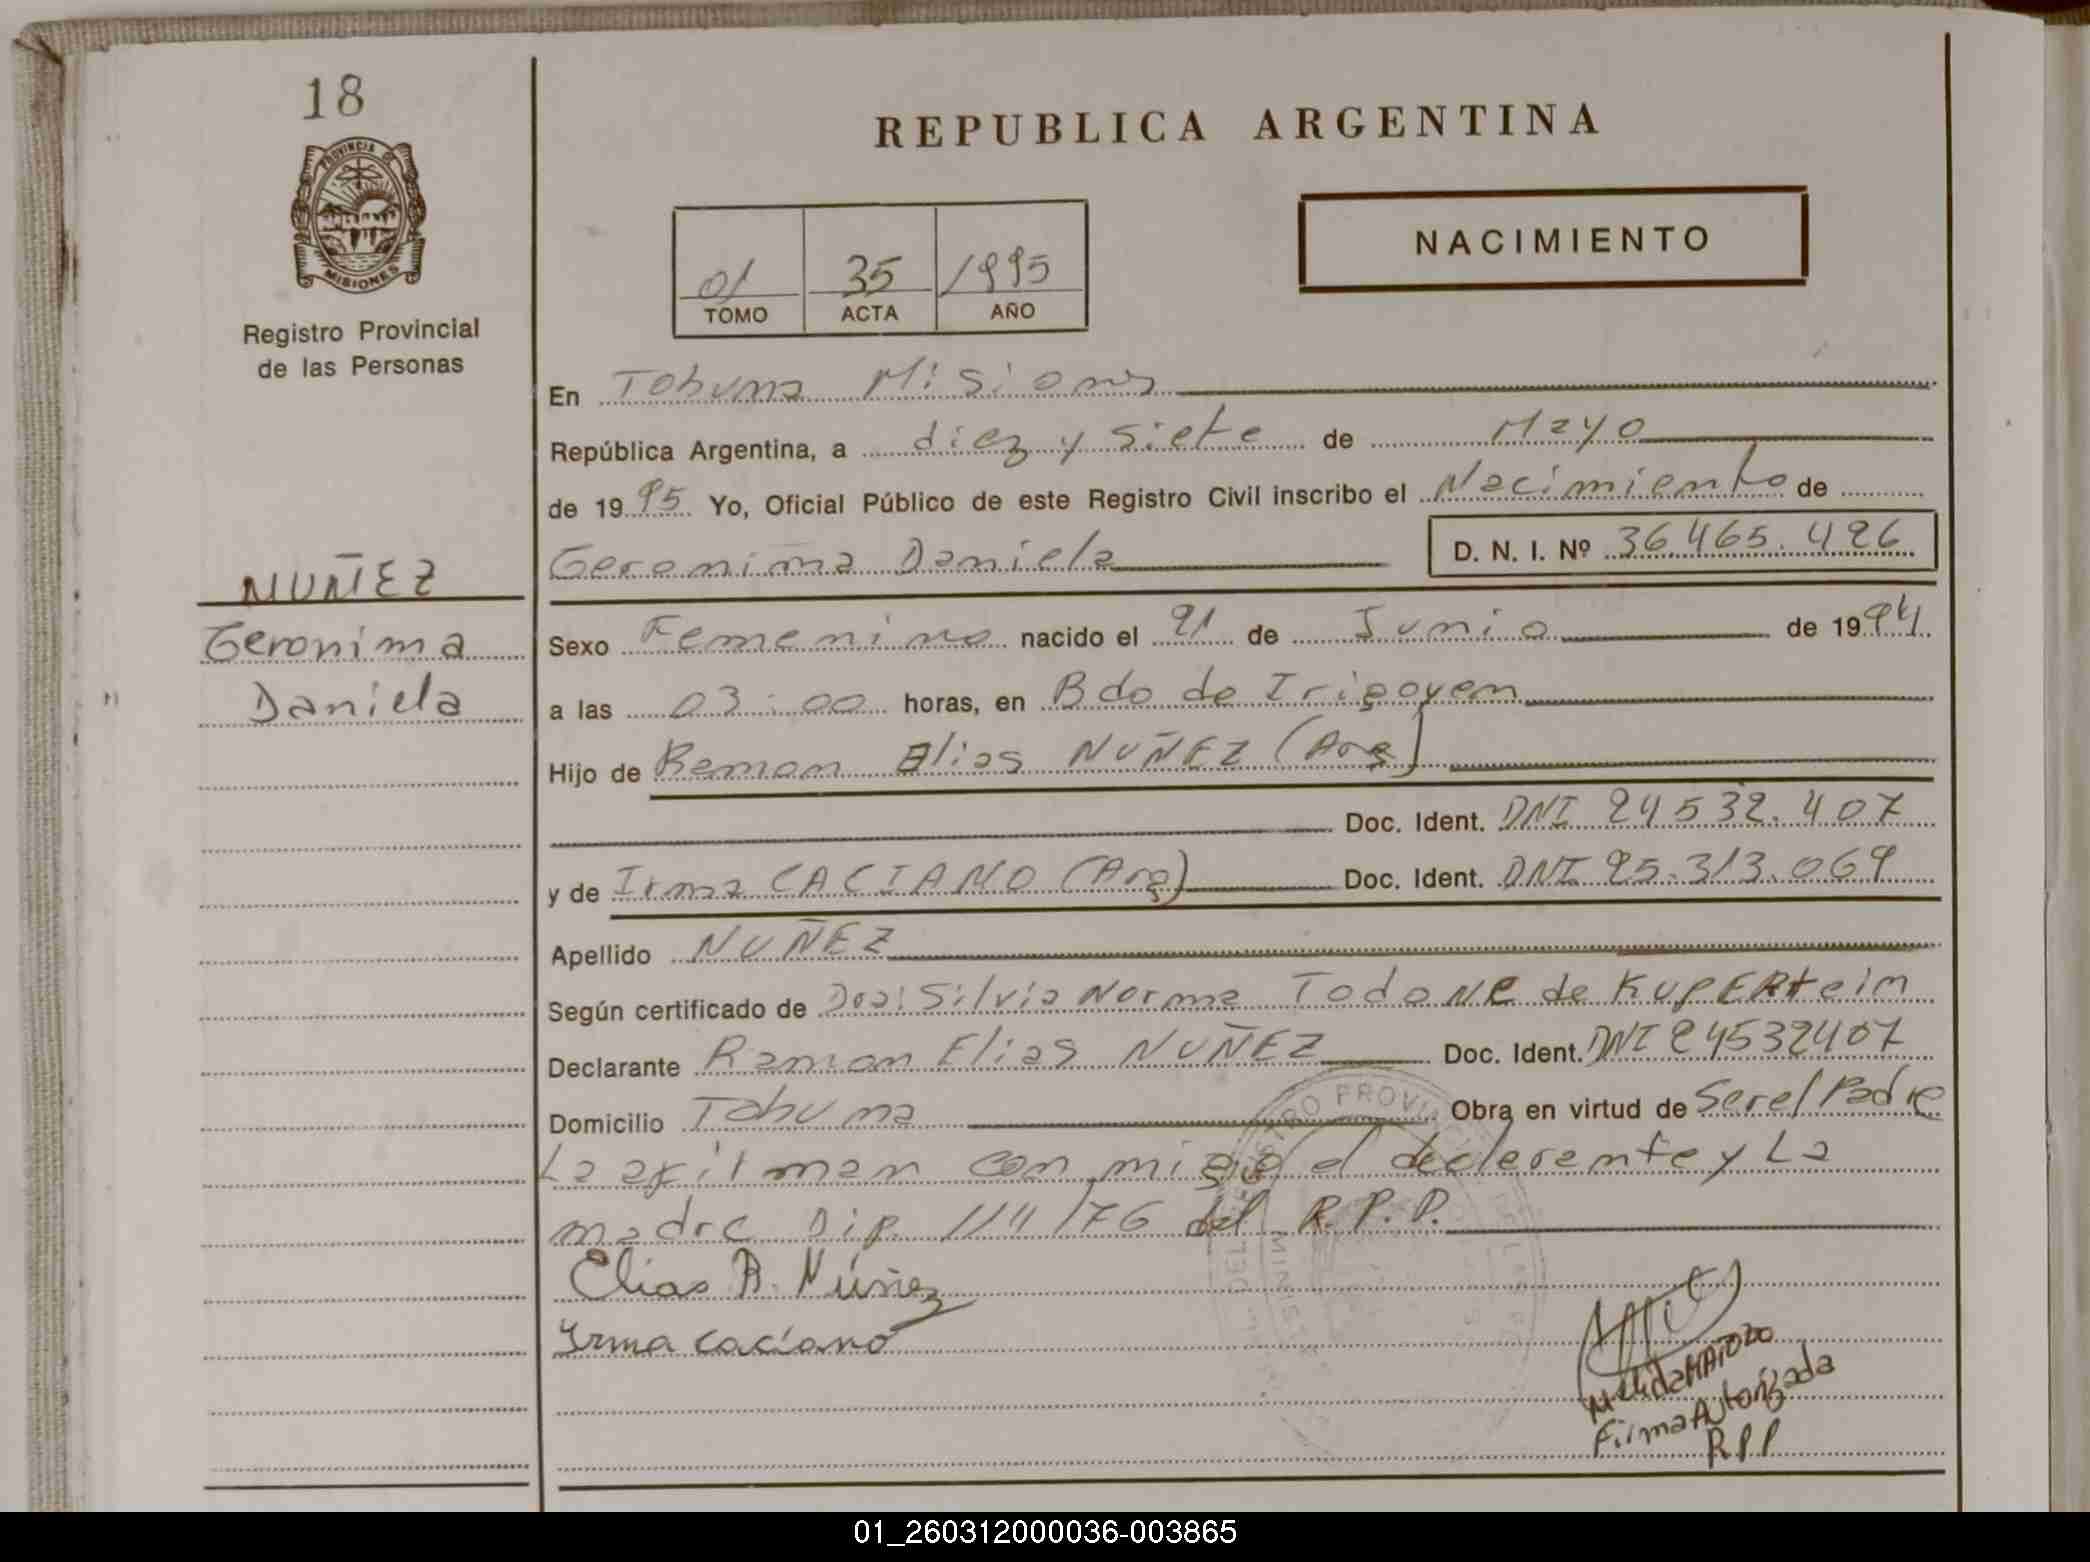 18
PROVINCIA DE
MISIONES
Registro Provincial
de las Personas
REPUBLICA ARGENTINA
NACIMIENTO
01 35 1995
TOMO ACTA AÑO
NUÑEZ
Geronima
Daniela
En Tobuna Misiones
República Argentina, a diez y siete de Mayo
de 1995 Yo, Oficial Público de este Registro Civil inscribo el Nacimiento de
Geronima Daniela D. N. I. Nº 36.465.426
Sexo Femenino nacido el 21 de Junio de 1994
a las 03:00 horas, en Bdo de Irigoyen
Hijo de Ramon Elias NUÑEZ (Arg)
Doc. Ident. DNI 24532.407
y de Irma CACIANO (Arg) Doc. Ident. DNI 25.313.069
Apellido NUÑEZ
Según certificado de Dra: Silvia Norma Todone de KUPERtein
Declarante Ramon Elias NUÑEZ Doc. Ident. DNI 24532407
Domicilio Tobuna Obra en virtud de Ser el Padre
La a firman con migo el declarante y La
madre Dip. 114/76 del R.P.P.
Elias R. Núñez
Irma Caciano
Firma Autorizada
RPP
01_260312000036-003865